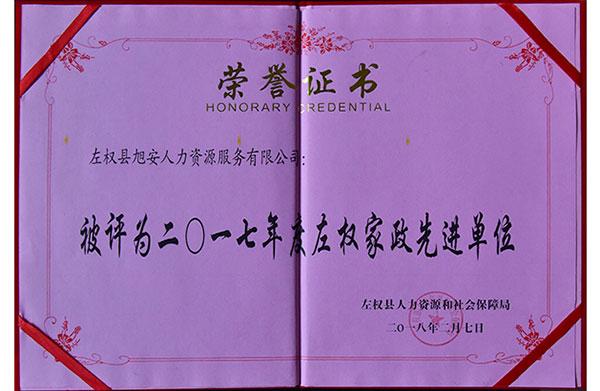 荣誉证书
HONORARY CREDENTIAL
左权县旭安人力资源服务有限公司：
被评为二〇一七年度左权家政先进单位
左权县人力资源和社会保障局
二〇一八年二月七日